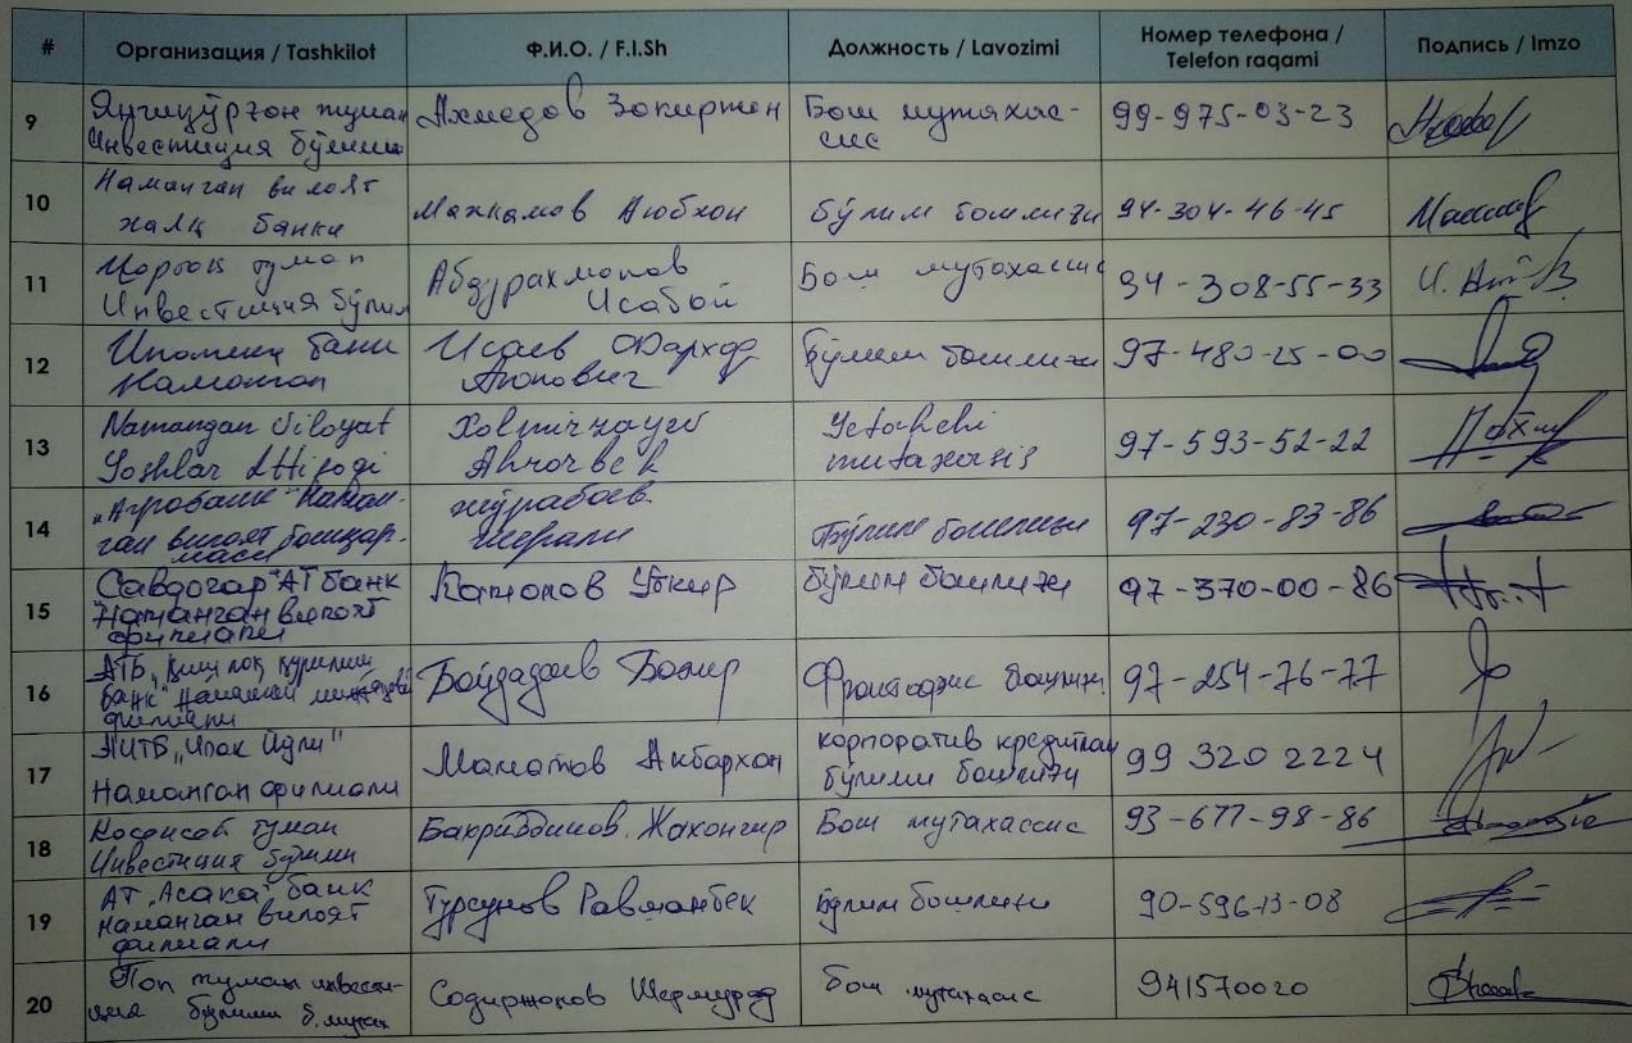 #
Организация / Tashkilot
Ф.И.О. / F.I.Sh
Должность / Lavozimi
Номер телефона /
Telefon raqami
Подпись / Imzo
9
Янгиқўрғон туман
Инвестиция бўлими
Ахмедов Зокиржон
Бош мутахас-
сис
99-975-03-23
10
Наманган вилоят
халқ банки
Махкамов Аюбхон
бўлим бошлиғи
94-304-46-45
11
Чортоқ туман
Инвестиция бўлим
Абдурахмонов
Исабой
Бош мутахассис
94-308-55-33
12
Ипотека банк
Наманган
Исаев Фарход
бўлим бошлиғи
97-480-25-00
13
Namangan viloyat
Yoshlar Ittifoqi
Xolmirzayev
Ahrorbek
Yetakchi
mutaxasis
97-593-52-22
14
"Агробанк" Наман-
ган вилоят бошқар-
маси
Жўрабоев
Шерали
Бўлим бошлиғи
97-230-83-86
15
Савдогар" АТ банк
Наманган вилоят
филиали
Ўткир
бўлим бошлиғи
97-370-00-86
16
АТБ "Қишлоқ қурилиш
банк" Наманган
филиали
Бойдадаев Бохир
Фронтофис бошлиғи
97-254-76-77
17
АИТБ "Ипак йўли"
Наманган филиали
Маматов Акбархон
корпоратив кредитлаш
бўлими бошлиғи
99 320 2224
18
Косонсой туман
Инвестиция бўлими
Бахриддинов Жахонгир
Бош мутахассис
93-677-98-86
19
АТ "Асака" банк
Наманган вилоят
филиали
Турсунов Равшанбек
бўлим бошлиғи
90-596-13-08
20
Поп туман инвести-
ция бўлими б.мутах
Содиржонов Шермурод
бош мутахасис
941570020